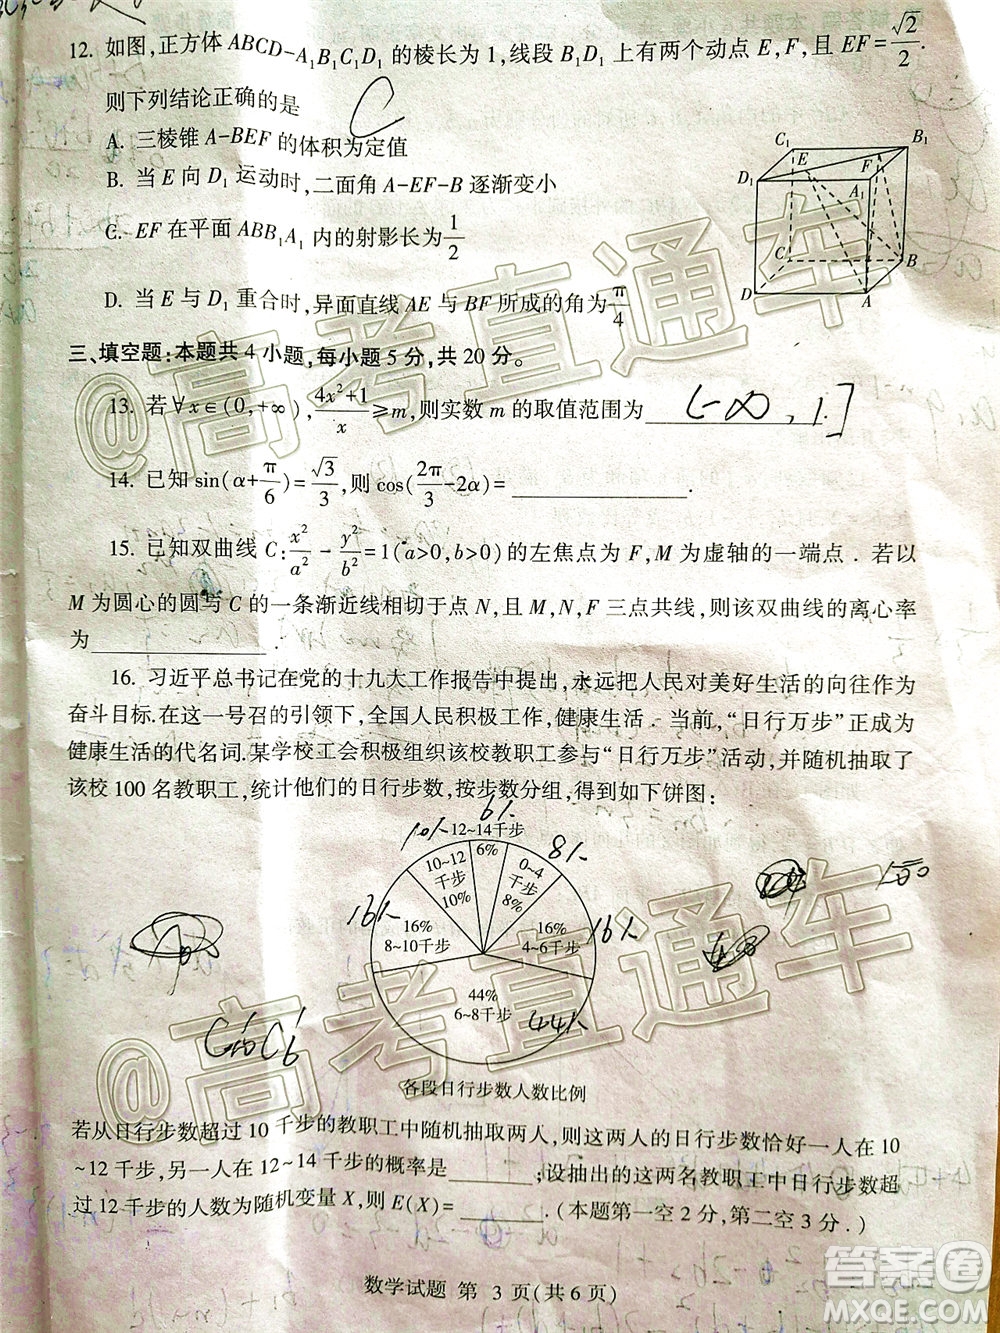 12. 如图,正方体 ABCD-A₁B₁C₁D₁ 的棱长为 1,线段 B₁D₁ 上有两个动点 E,F,且 EF=√2/2.
则下列结论正确的是
C
A. 三棱锥 A-BEF 的体积为定值
B. 当 E 向 D₁ 运动时,二面角 A-EF-B 逐渐变小
C. EF 在平面 ABB₁A₁ 内的射影长为1/2
D. 当 E 与 D₁ 重合时,异面直线 AE 与 BF 所成的角为π/4
C₁ B₁ E F D₁ A₁ C B D A
三、填空题:本题共 4 小题,每小题 5 分,共 20 分。
13. 若∀x∈(0,+∞),(4x²+1)/x≥m,则实数 m 的取值范围为________.
(-∞, 1]
14. 已知 sin(α+π/6)=√3/3,则 cos(2π/3-2α)=________.
15. 已知双曲线 C:x²/a²-y²/b²=1(a>0,b>0)的左焦点为 F,M 为虚轴的一端点．若以
M 为圆心的圆与 C 的一条渐近线相切于点 N,且 M,N,F 三点共线,则该双曲线的离心率
为________.
16. 习近平总书记在党的十九大工作报告中提出,永远把人民对美好生活的向往作为
奋斗目标.在这一号召的引领下,全国人民积极工作,健康生活．当前,“日行万步”正成为
健康生活的代名词.某学校工会积极组织该校教职工参与“日行万步”活动,并随机抽取了
该校 100 名教职工,统计他们的日行步数,按步数分组,得到如下饼图:
10% 6%
12~14千步
8%
10~12
千步
10%
6%
0~4
千步
8%
16%
16%
8~10千步
16%
4~6千步
16%
44%
6~8千步
44%
各段日行步数人数比例
若从日行步数超过 10 千步的教职工中随机抽取两人,则这两人的日行步数恰好一人在 10
~12 千步,另一人在 12~14 千步的概率是______;设抽出的这两名教职工中日行步数超
过 12 千步的人数为随机变量 X,则 E(X)=______.(本题第一空 2 分,第二空 3 分．)
数学试题 第 3 页(共 6 页)
@高考直通车
@高考直通车
答案圈
MXQE.COM